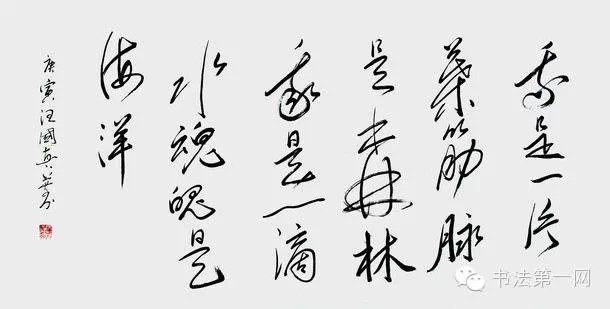 我是一片
葉筋脉
是森林
我是一滴
水魂魄是
海洋
庚寅汪國真
书法第一网